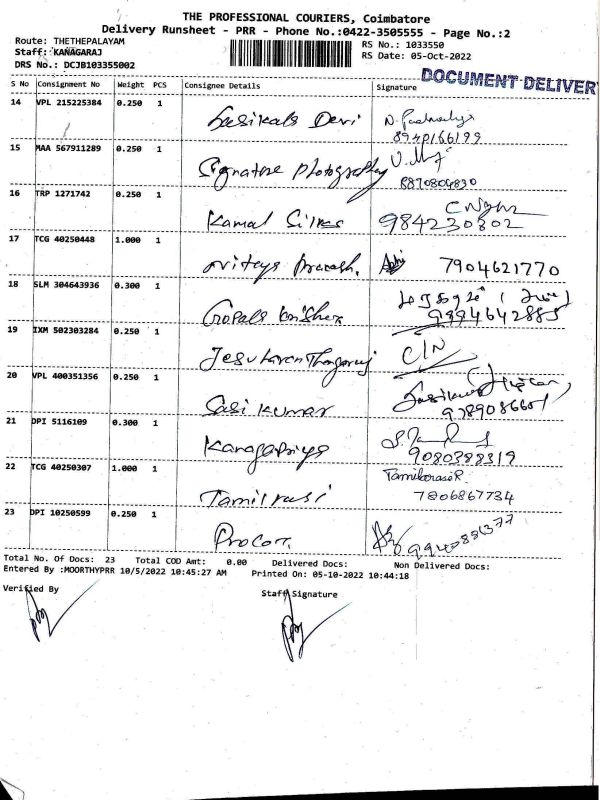 THE PROFESSIONAL COURIERS, Coimbatore
Delivery Runsheet - PRR - Phone No.:0422-3505555 - Page No.:2
Route: THETHEPALAYAM
RS No.: 1033550
Staff: KANAGARAJ
RS Date: 05-Oct-2022
DRS No.: DCJB103355002
DOCUMENT DELIVER
S No Consignment No Weight PCS Consignee Details Signature
14 VPL 215225384 0.250 1
Sasikala Devi
15 MAA 567911289 0.250 1
Signature Photography 8870804830
16 TRP 1271742 0.250 1
Kamal Silks 984230802
17 TCG 40250448 1.000 1
Prakash. 7904621770
18 SLM 304643936 0.300 1
Gopala Krishna 9894642885
19 IXM 502303284 0.250 1
C/N
20 VPL 400351356 0.250 1
Sasi Kumar
21 DPI 5116109 0.300 1
Kanagapriya 9080388319
22 TCG 40250307 1.000 1
Tamilrasi Tamilarasi R. 7806867734
23 DPI 10250599 0.250 1
Total No. Of Docs: 23 Total COD Amt: 0.00 Delivered Docs: Non Delivered Docs:
Entered By :MOORTHYPRR 10/5/2022 10:45:27 AM Printed On: 05-10-2022 10:44:18
Verified By Staff Signature